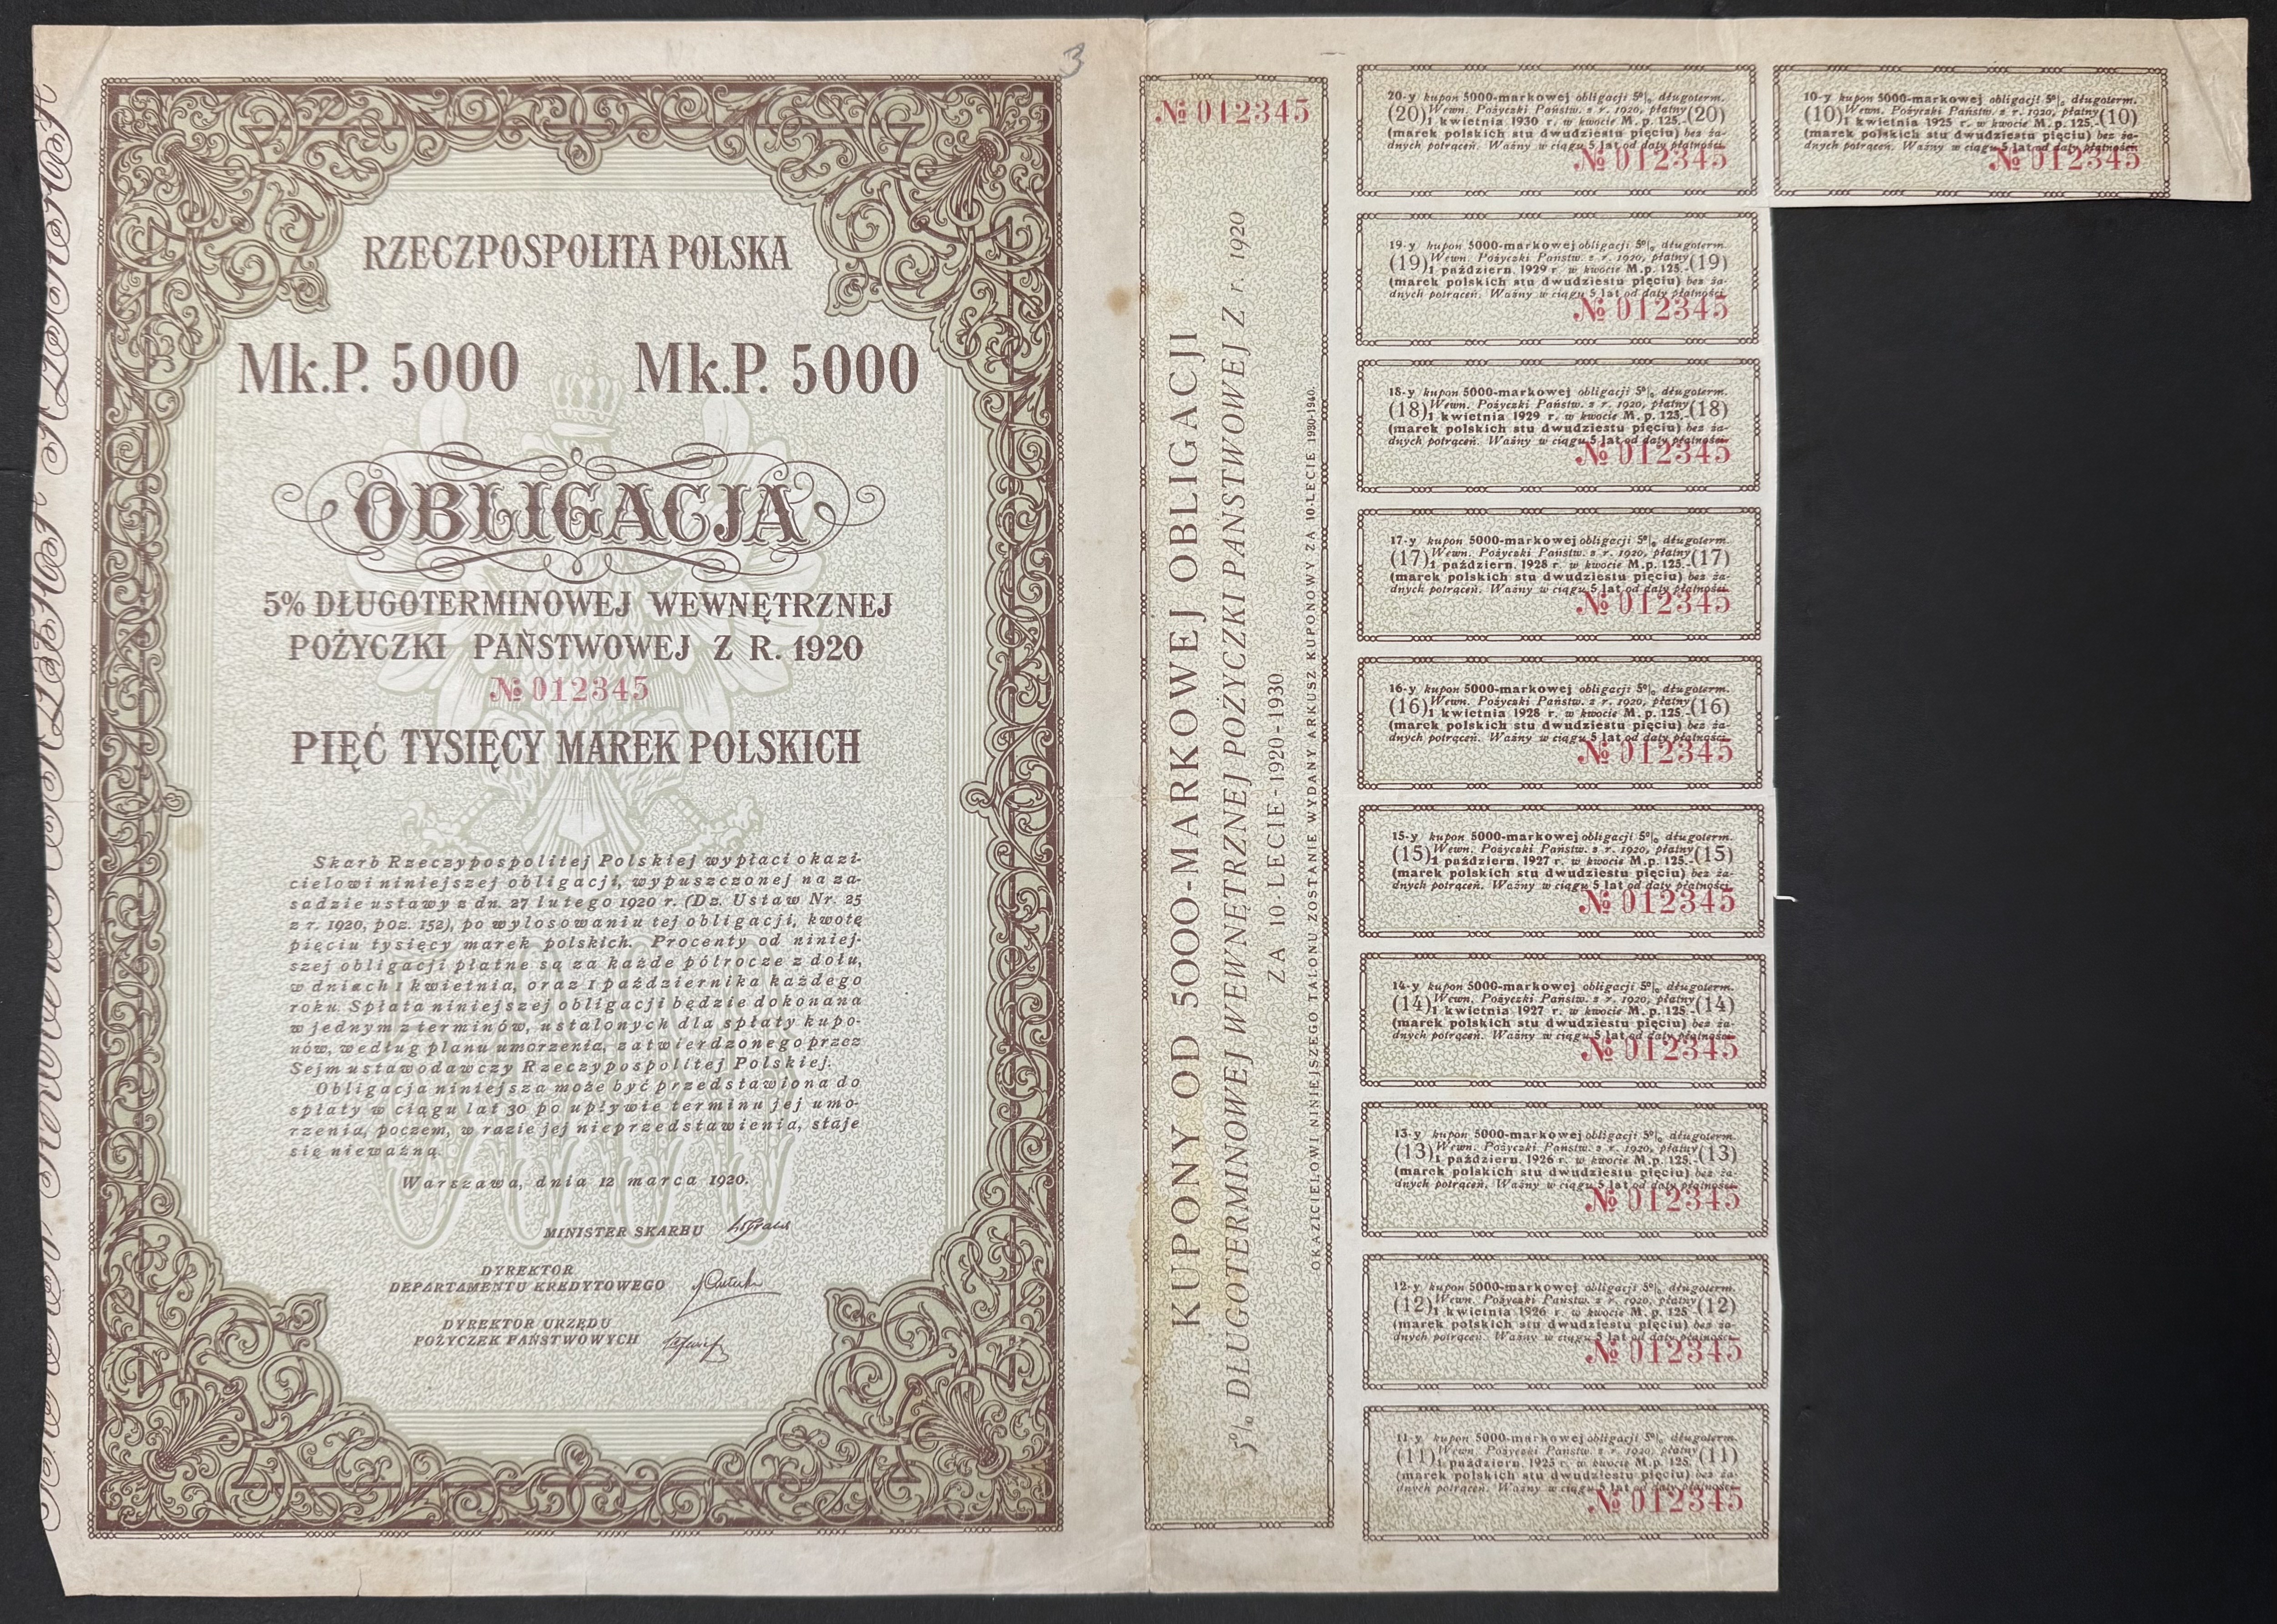 3
RZECZPOSPOLITA POLSKA
Mk.P. 5000 Mk.P. 5000
OBLIGACJA
5% DŁUGOTERMINOWEJ WEWNĘTRZNEJ
POŻYCZKI PAŃSTWOWEJ Z R. 1920
№ 012345
PIĘĆ TYSIĘCY MAREK POLSKICH
Skarb Rzeczypospolitej Polskiej wypłaci okazi-
cielowi niniejszej obligacji, wypuszczonej na za-
sadzie ustawy z dn. 27 lutego 1920 r. (Dz. Ustaw Nr. 25
z r. 1920, poz. 152), po wylosowaniu tej obligacji, kwotę
pięciu tysięcy marek polskich. Procenty od niniej-
szej obligacji płatne są za każde półrocze z dołu,
w dniach 1 kwietnia, oraz 1 października każdego
roku. Spłata niniejszej obligacji będzie dokonana
w jednym z terminów, ustalonych dla spłaty kupo-
nów, według planu umorzenia, zatwierdzonego przez
Sejm ustawodawczy Rzeczypospolitej Polskiej.
Obligacja niniejsza może być przedstawiona do
spłaty w ciągu lat 30 po upływie terminu jej umo-
rzenia, poczem, w razie jej nieprzedstawienia, staje
się nieważną.
Warszawa, dnia 12 marca 1920.
MINISTER SKARBU
DYREKTOR
DEPARTAMENTU KREDYTOWEGO
DYREKTOR URZĘDU
POŻYCZEK PAŃSTWOWYCH
№ 012345
KUPONY OD 5000-MARKOWEJ OBLIGACJI
5% DŁUGOTERMINOWEJ WEWNĘTRZNEJ POŻYCZKI PAŃSTWOWEJ Z r. 1920
ZA 10-LECIE-1920-1930
OKAZICIELOWI NINIEJSZEGO TALONU ZOSTANIE WYDANY ARKUSZ KUPONOWY ZA 10-LECIE 1930-1940.
20-y kupon 5000-markowej obligacji 5% długoterm.
(20) Wewn. Pożyczki Państw. z r. 1920, płatny (20)
1 kwietnia 1930 r. w kwocie M. p. 125.-
(marek polskich stu dwudziestu pięciu) bez ża-
dnych potrąceń. Ważny w ciągu 5 lat od daty płatności.
№ 012345
10-y kupon 5000-markowej obligacji 5% długoterm.
(10) Wewn. Pożyczki Państw. z r. 1920, płatny (10)
1 kwietnia 1925 r. w kwocie M. p. 125.-
(marek polskich stu dwudziestu pięciu) bez ża-
dnych potrąceń. Ważny w ciągu 5 lat od daty płatności.
№ 012345
19-y kupon 5000-markowej obligacji 5% długoterm.
(19) Wewn. Pożyczki Państw. z r. 1920, płatny (19)
1 październ. 1929 r. w kwocie M. p. 125.-
(marek polskich stu dwudziestu pięciu) bez ża-
dnych potrąceń. Ważny w ciągu 5 lat od daty płatności.
№ 012345
18-y kupon 5000-markowej obligacji 5% długoterm.
(18) Wewn. Pożyczki Państw. z r. 1920, płatny (18)
1 kwietnia 1929 r. w kwocie M. p. 125.-
(marek polskich stu dwudziestu pięciu) bez ża-
dnych potrąceń. Ważny w ciągu 5 lat od daty płatności.
№ 012345
17-y kupon 5000-markowej obligacji 5% długoterm.
(17) Wewn. Pożyczki Państw. z r. 1920, płatny (17)
1 październ. 1928 r. w kwocie M. p. 125.-
(marek polskich stu dwudziestu pięciu) bez ża-
dnych potrąceń. Ważny w ciągu 5 lat od daty płatności.
№ 012345
16-y kupon 5000-markowej obligacji 5% długoterm.
(16) Wewn. Pożyczki Państw. z r. 1920, płatny (16)
1 kwietnia 1928 r. w kwocie M. p. 125.-
(marek polskich stu dwudziestu pięciu) bez ża-
dnych potrąceń. Ważny w ciągu 5 lat od daty płatności.
№ 012345
15-y kupon 5000-markowej obligacji 5% długoterm.
(15) Wewn. Pożyczki Państw. z r. 1920, płatny (15)
1 październ. 1927 r. w kwocie M. p. 125.-
(marek polskich stu dwudziestu pięciu) bez ża-
dnych potrąceń. Ważny w ciągu 5 lat od daty płatności.
№ 012345
14-y kupon 5000-markowej obligacji 5% długoterm.
(14) Wewn. Pożyczki Państw. z r. 1920, płatny (14)
1 kwietnia 1927 r. w kwocie M. p. 125.-
(marek polskich stu dwudziestu pięciu) bez ża-
dnych potrąceń. Ważny w ciągu 5 lat od daty płatności.
№ 012345
13-y kupon 5000-markowej obligacji 5% długoterm.
(13) Wewn. Pożyczki Państw. z r. 1920, płatny (13)
1 październ. 1926 r. w kwocie M. p. 125.-
(marek polskich stu dwudziestu pięciu) bez ża-
dnych potrąceń. Ważny w ciągu 5 lat od daty płatności.
№ 012345
12-y kupon 5000-markowej obligacji 5% długoterm.
(12) Wewn. Pożyczki Państw. z r. 1920, płatny (12)
1 kwietnia 1926 r. w kwocie M. p. 125.-
(marek polskich stu dwudziestu pięciu) bez ża-
dnych potrąceń. Ważny w ciągu 5 lat od daty płatności.
№ 012345
11-y kupon 5000-markowej obligacji 5% długoterm.
(11) Wewn. Pożyczki Państw. z r. 1920, płatny (11)
1 październ. 1925 r. w kwocie M. p. 125.
(marek polskich stu dwudziestu pięciu) bez ża-
dnych potrąceń. Ważny w ciągu 5 lat od daty płatności.
№ 012345